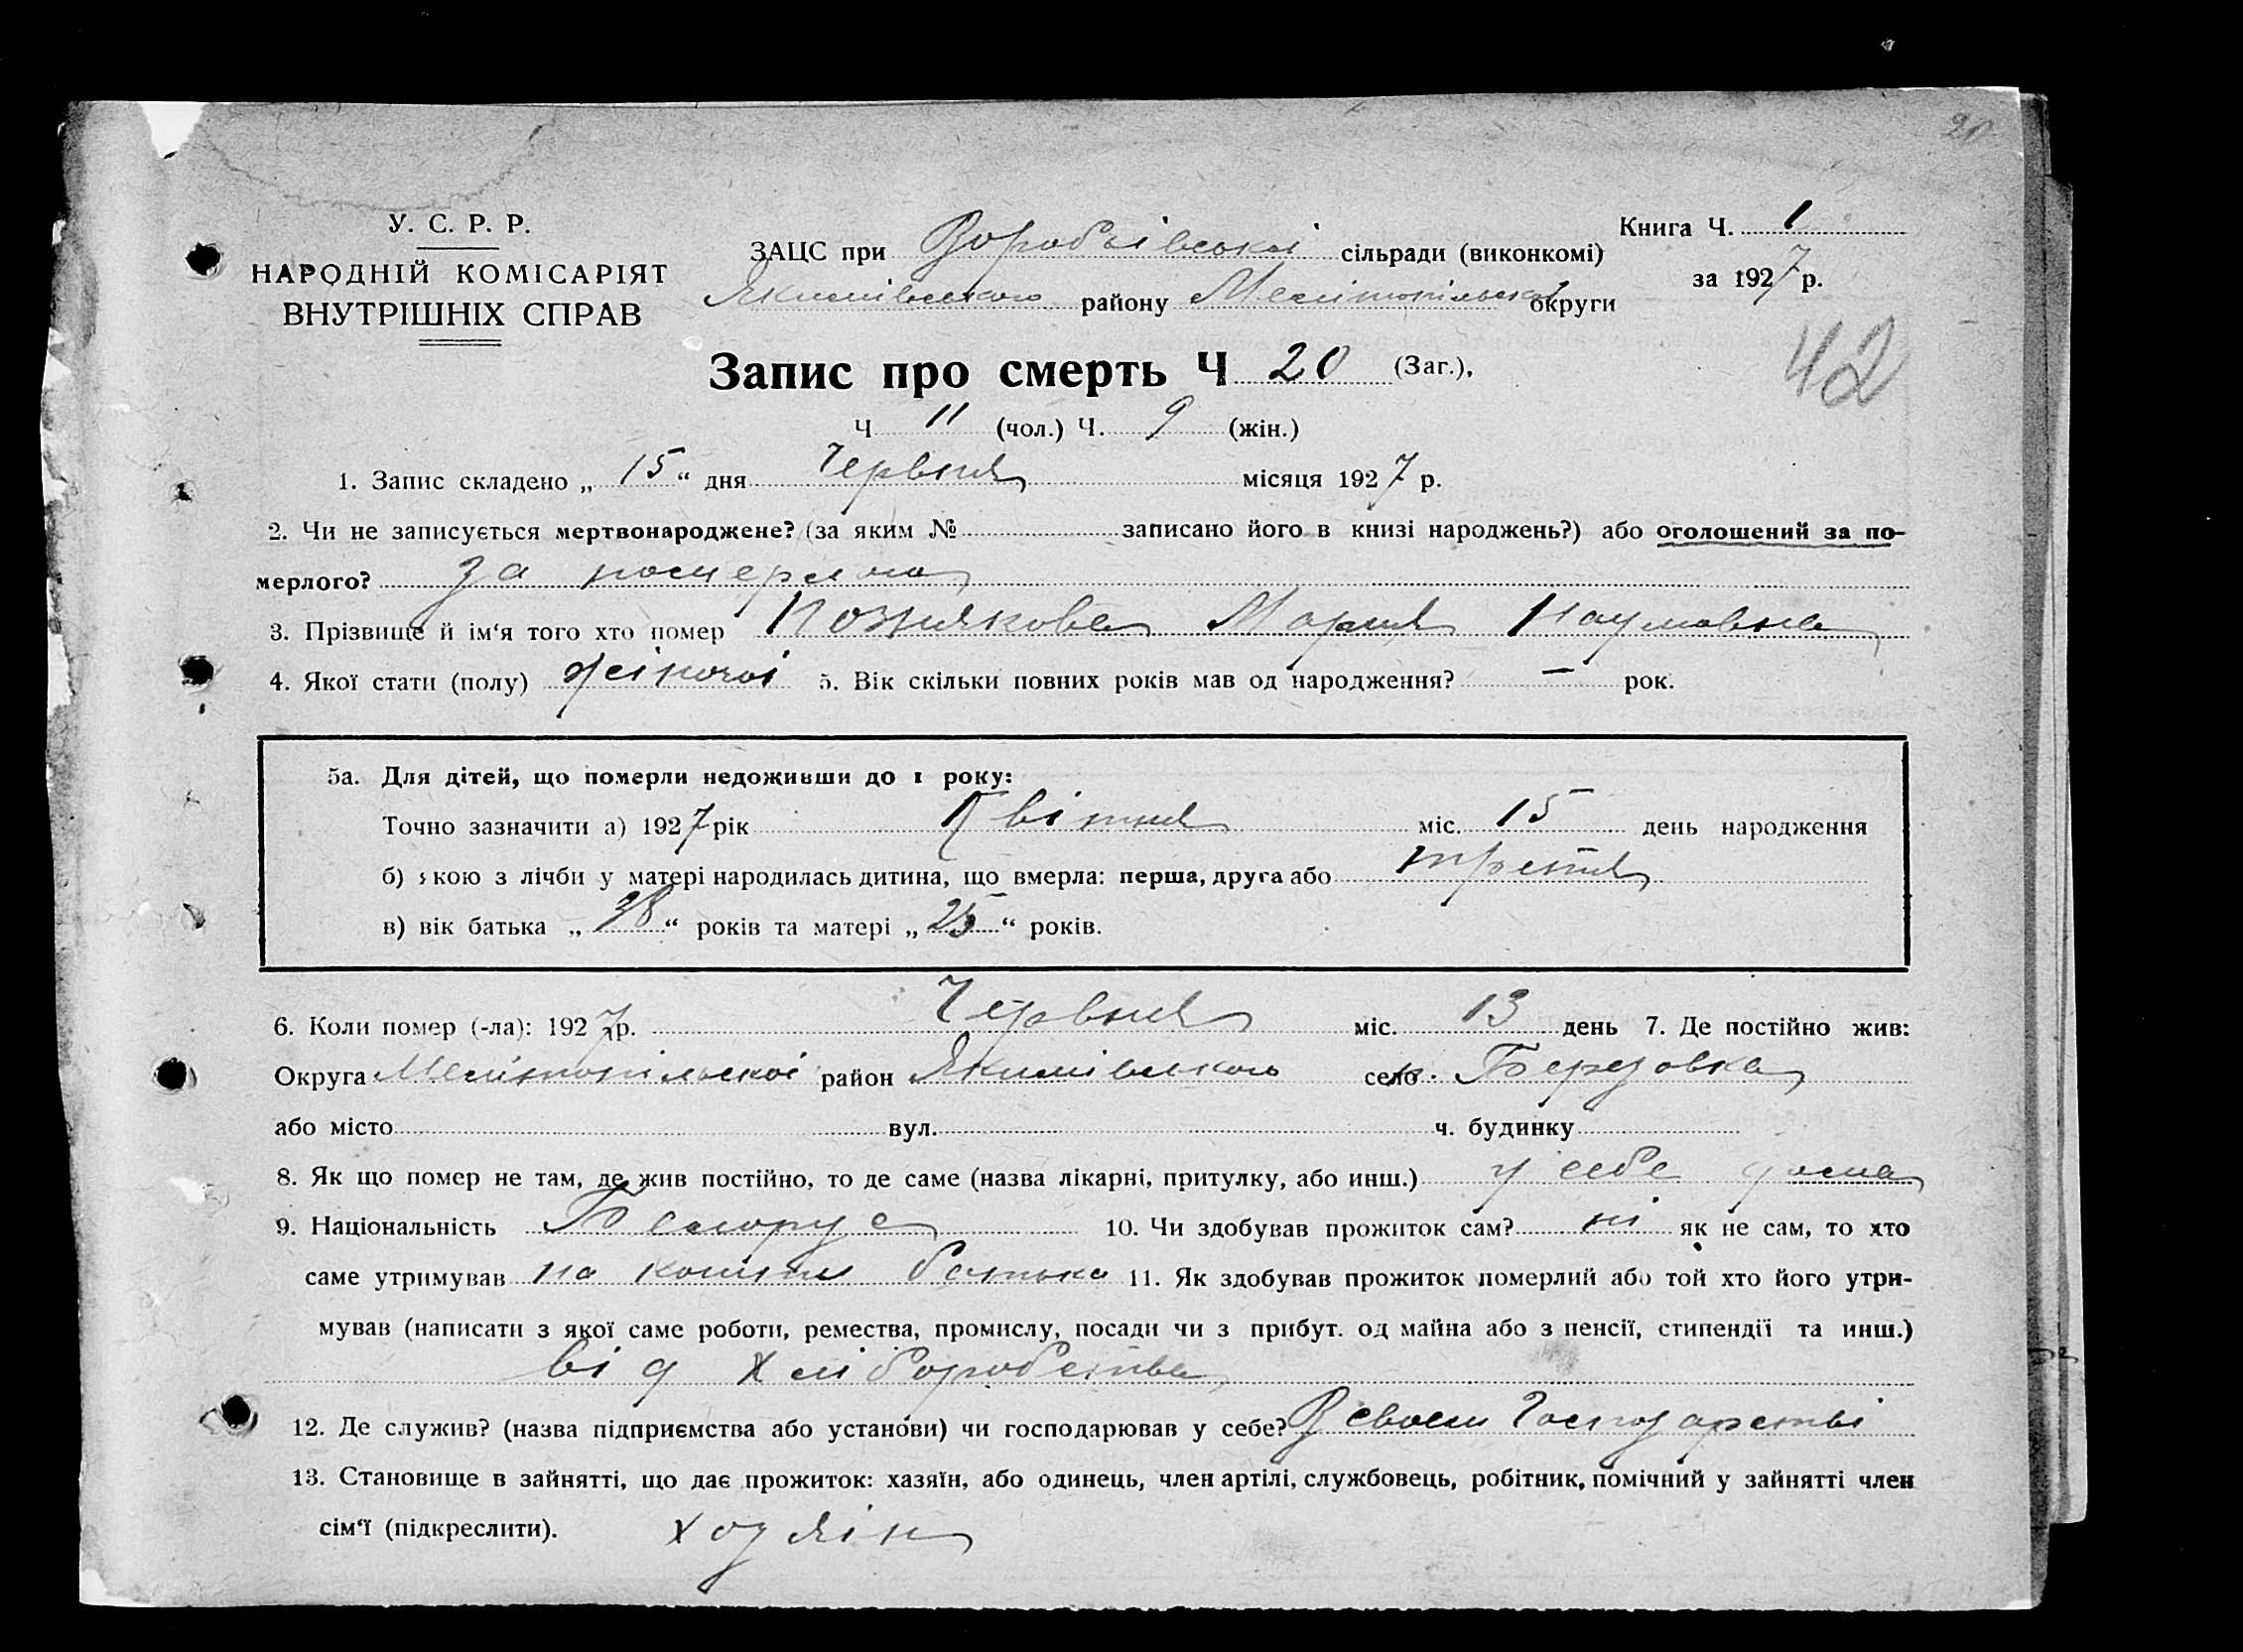 20
У. С. Р. Р.
НАРОДНІЙ КОМІСАРІЯТ
ВНУТРІШНІХ СПРАВ
ЗАЦС при Воробьівськоі сільради (виконкомі)
Якимівського району Мелітопільськоі округи
Книга Ч. 1
за 1927 р.
42
Запис про смерть Ч 20 (Заг.),
Ч 11 (чол.) Ч. 9 (жін.)
1. Запис складено „ 15 “ дня Червня місяця 1927 р.
2. Чи не записується мертвонароджене? (за яким № записано його в книзі народжень?) або оголошений за по-
мерлого? за померла
3. Прізвище й ім‘я того хто помер Познякова Мария Наумовна
4. Якої стати (полу) жіночоі 5. Вік скільки повних років мав од народження? — рок.
5а. Для дітей, що померли недоживши до 1 року:
Точно зазначити а) 1927 рік Квітня міс. 15 день народження
б) якою з лічби у матері народилась дитина, що вмерла: перша, друга або третя
в) вік батька „ 38 “ років та матері „ 25 “ років.
6. Коли помер (-ла): 1927 р. Червня міс. 13 день 7. Де постійно жив:
Округа Мелітопільскоі район Якимівського село Березовка
або місто вул. ч. будинку
8. Як що помер не там, де жив постійно, то де саме (назва лікарні, притулку, або инш.) у себе дома
9. Національність Белорус 10. Чи здобував прожиток сам? ні як не сам, то хто
саме утримував на кошти батька 11. Як здобував прожиток померлий або той хто його утри-
мував (написати з якої саме роботи, ремества, промислу, посади чи з прибут. од майна або з пенсії, стипендії та инш.)
від хліборобства
12. Де служив? (назва підприємства або установи) чи господарював у себе? В своем Господарстві
13. Становище в зайнятті, що дає прожиток: хазяїн, або одинець, член артілі, службовець, робітник, помічний у зайнятті член
сім‘ї (підкреслити). хозяін